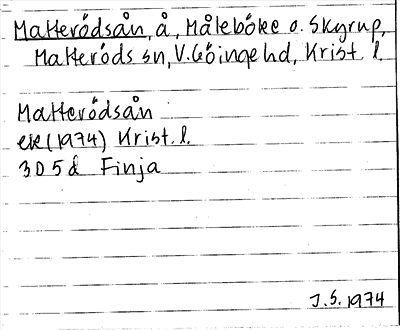 Matterödsån, å, Måleböke o. Skyrup,
Matteröds sn, V. Göinge hd, Krist. l.
Matterödsån
ek (1974) Krist. l.
3D5d Finja
J.S. 1974